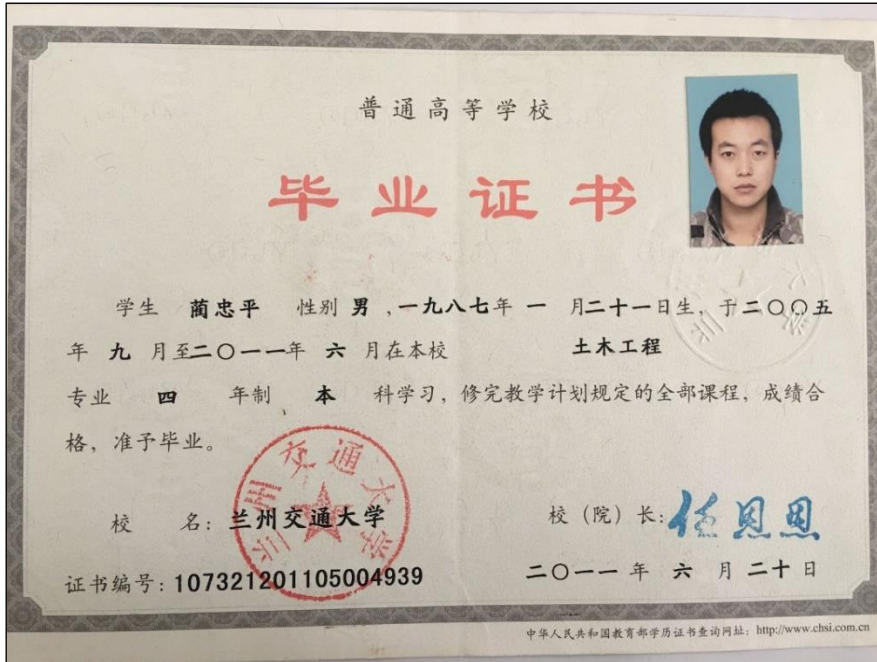 普通高等学校
毕业证书
学生 蔺忠平 性别 男 ,一九八七年 一 月二十一日生, 于二〇〇五
年 九 月至二〇一一年 六 月在本校 土木工程
专业 四 年制 本 科学习, 修完教学计划规定的全部课程, 成绩合
格, 准予毕业。
兰州交通大学
校 名: 兰州交通大学 校（院）长: 任恩恩
证书编号: 107321201105004939 二〇一一 年 六 月 二十 日
中华人民共和国教育部学历证书查询网址: http://www.chsi.com.cn